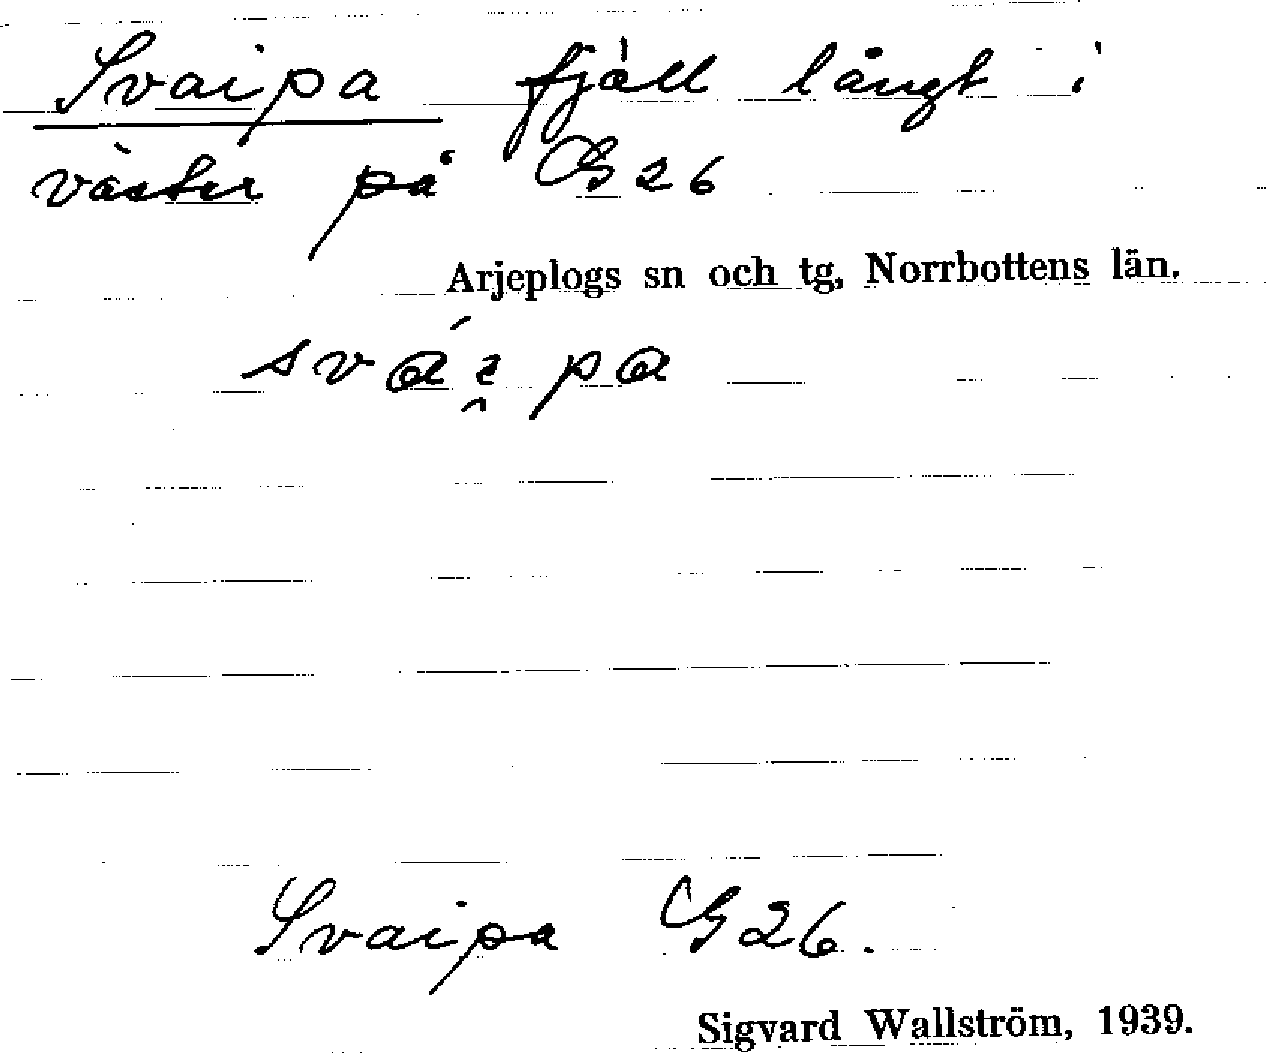 Svaipa fjäll långt i
väster på G26
Arjeplogs sn och tg, Norrbottens län.
Svaipa G26.
Sigvard Wallström, 1939.